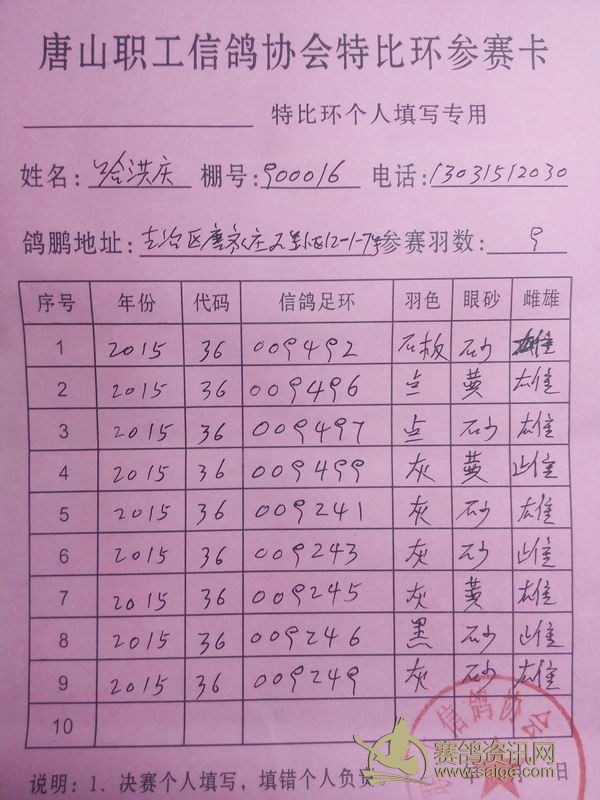 唐山职工信鸽协会特比环参赛卡
特比环个人填写专用
姓名: 哈洪庆 棚号: 900016 电话: 13031512030
鸽鹏地址: 古冶区唐家庄 12-1-7号 参赛羽数: 9
序号 年份 代码 信鸽足环 羽色 眼砂 雌雄
1 2015 36 009492 石板 砂 雄
2 2015 36 009496 点 黄 雄
3 2015 36 009497 点 砂 雄
4 2015 36 009499 灰 黄 雌
5 2015 36 009241 灰 砂 雄
6 2015 36 009243 灰 砂 雌
7 2015 36 009245 灰 黄 雄
8 2015 36 009246 黑 砂 雌
9 2015 36 009249 灰 砂 雄
10
信鸽协会
赛鸽资讯网
说明: 1、决赛个人填写，填错个人负责。 年 月 日
www.saige.com